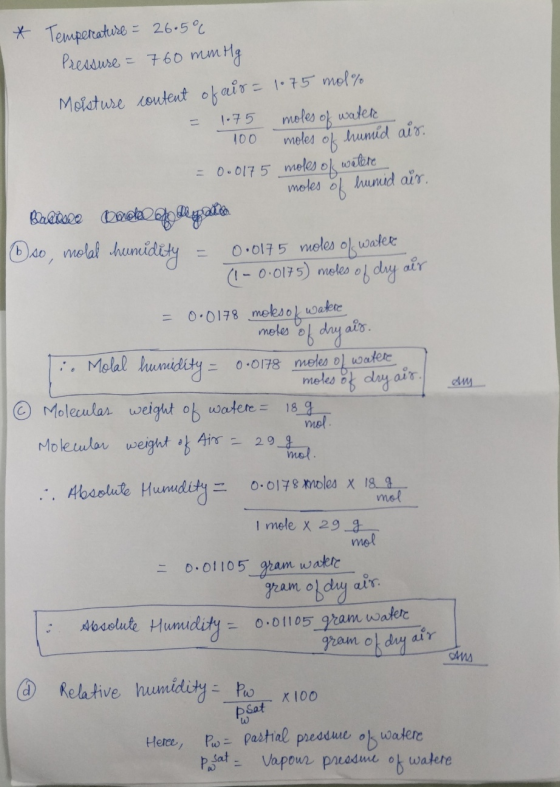 * Temperature = 26.5°C
Pressure = 760 mmHg
Moisture content of air = 1.75 mol%
= 1.75/100 moles of water/moles of humid air.
= 0.0175 moles of water/moles of humid air.
(b) so, molal humidity = 0.0175 moles of water/(1 - 0.0175) moles of dry air
= 0.0178 moles of water/moles of dry air.
∴ Molal humidity = 0.0178 moles of water/moles of dry air. Ans
(c) Molecular weight of water = 18 g/mol.
Molecular weight of Air = 29 g/mol.
∴ Absolute Humidity = 0.0178 moles × 18 g/mol / 1 mole × 29 g/mol
= 0.01105 gram water/gram of dry air.
∴ Absolute Humidity = 0.01105 gram water/gram of dry air
Ans
(d) Relative humidity = Pw/Pw^sat × 100
Here, Pw = partial pressure of water
Pw^sat = Vapour pressure of water